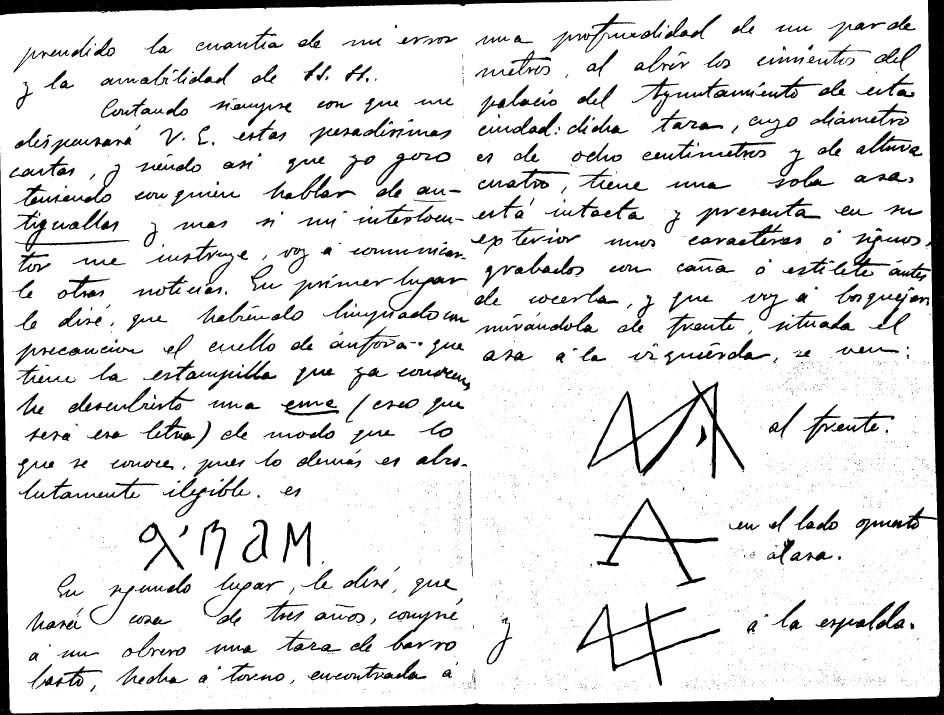 prendido la cuantia de mi error
y la amabilidad de SS. SS..
Contando siempre con que me
dispensará V. E. estas pesadisimas
cartas, y siendo asi que yo gozo
teniendo con quien hablar de an-
tiguallas y mas si mi interlocu-
tor me instruye, voy á comunicar-
le otras noticias. En primer lugar
le diré, que habiendo limpiado con
precaucion el cuello de ánfora que
tiene la estampilla que ya conocen,
he descubierto una eme (creo que
será esa letra) de modo que lo
que se conoce, pues lo demás es abso-
lutamente ilegible. es
En segundo lugar, le diré, que
hará cosa de tres años, compré
á un obrero una taza de barro
basto, hecha á torno, encontrada á
una profundidad de un par de
metros, al abrir los cimientos del
palacio del Ayuntamiento de esta
ciudad: dicha taza, cuyo diámetro
es de ocho centimetros y de altura
cuatro, tiene una sola asa,
está intacta y presenta en su
exterior unos caracteres ó signos,
grabados con caña ó estilete ántes
de cocerla, y que voy á bosquejar:
mirándola de frente, situada el
asa á la izquierda, se ven:
al frente.
en el lado opuesto
al asa.
y á la espalda.